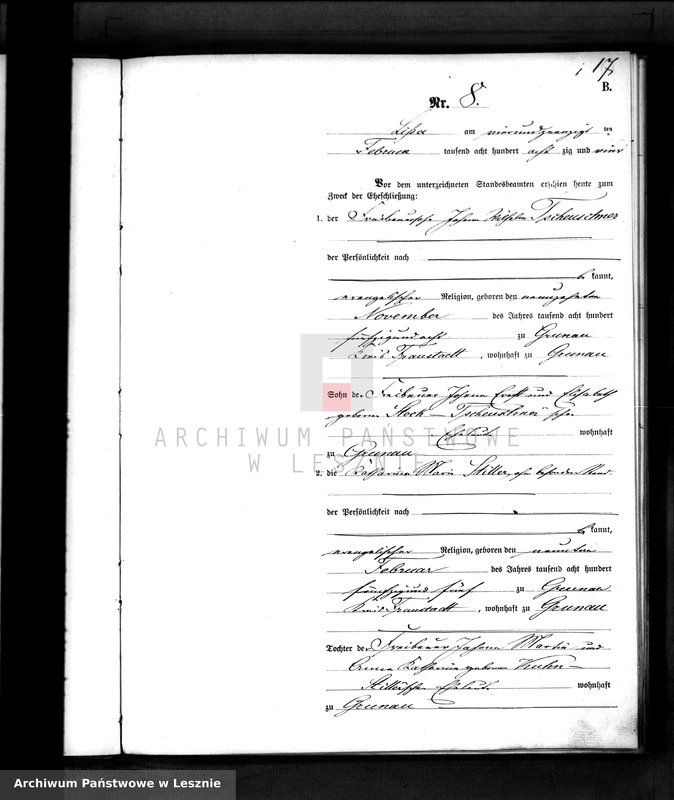 17
B.
Nr. 8.
Lissa am vierundzwanzigsten
Februar tausend acht hundert acht zig und vier
Vor dem unterzeichneten Standesbeamten erschien heute zum
Zweck der Eheschließung:
1. der Johann Wilhelm Tscheuschner
der Persönlichkeit nach
kannt,
evangelischer Religion, geboren den neunzehnten
November des Jahres tausend acht hundert
fünfzig und acht zu Grunau
Kreis Fraustadt, wohnhaft zu Grunau
Sohn der Freibauer Johann Ernst und Elisabeth
geborene Stock - Tscheuschner'schen
Eheleute wohnhaft
zu Grunau
2. die Katharina Marie Stiller, ohne besonderen Stand
der Persönlichkeit nach
kannt,
evangelischer Religion, geboren den neunten
Februar des Jahres tausend acht hundert
fünfzig und fünf zu Grunau
Kreis Fraustadt, wohnhaft zu Grunau
Tochter der Freibauer Johann Martin und
Anna Katharina geborene Kuhn -
Stiller'schen Eheleute wohnhaft
zu Grunau
ARCHIWUM PAŃSTWOWE
W LESZNIE
Archiwum Państwowe w Lesznie